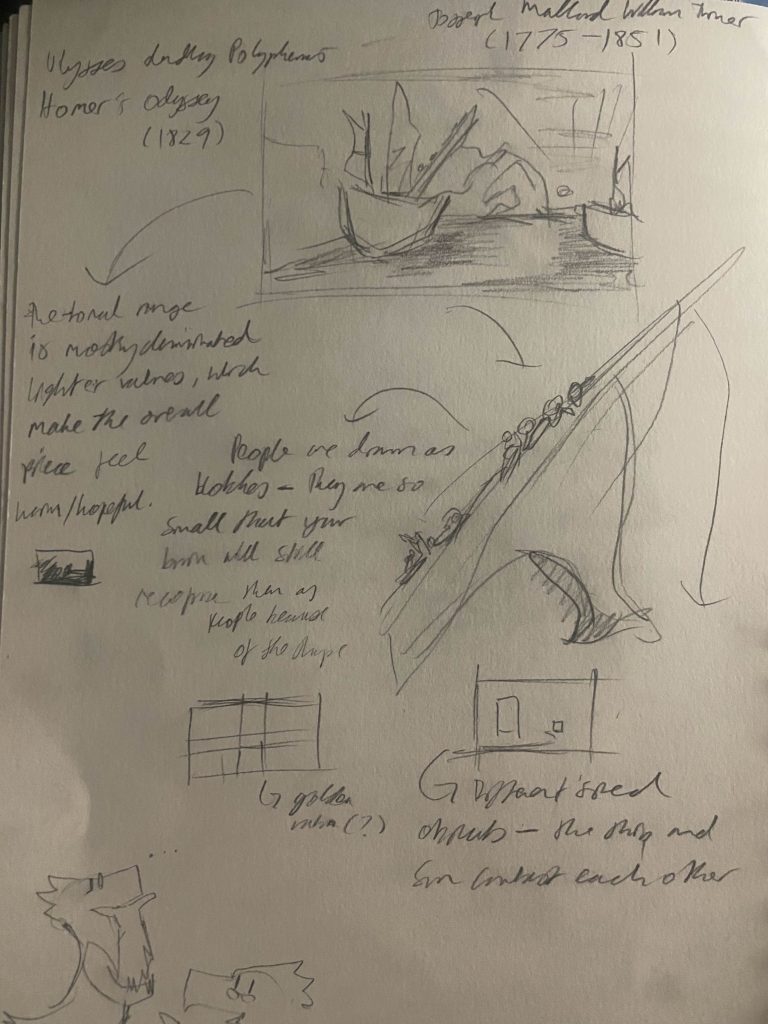 Joseph Mallord William Turner
(1775-1851)
Ulysses Polyphemus
Homer's Odyssey
(1829)
the tonal range
is mostly dominated
lighter values, which
make the overall
piece feel
warm/hopeful.
People are drawn as
blotches - They are so
small that your
brain will still
recognise them as
people because
of the shape
golden
ratio (?)
Different sized
objects - the ship and
Sun each other
...